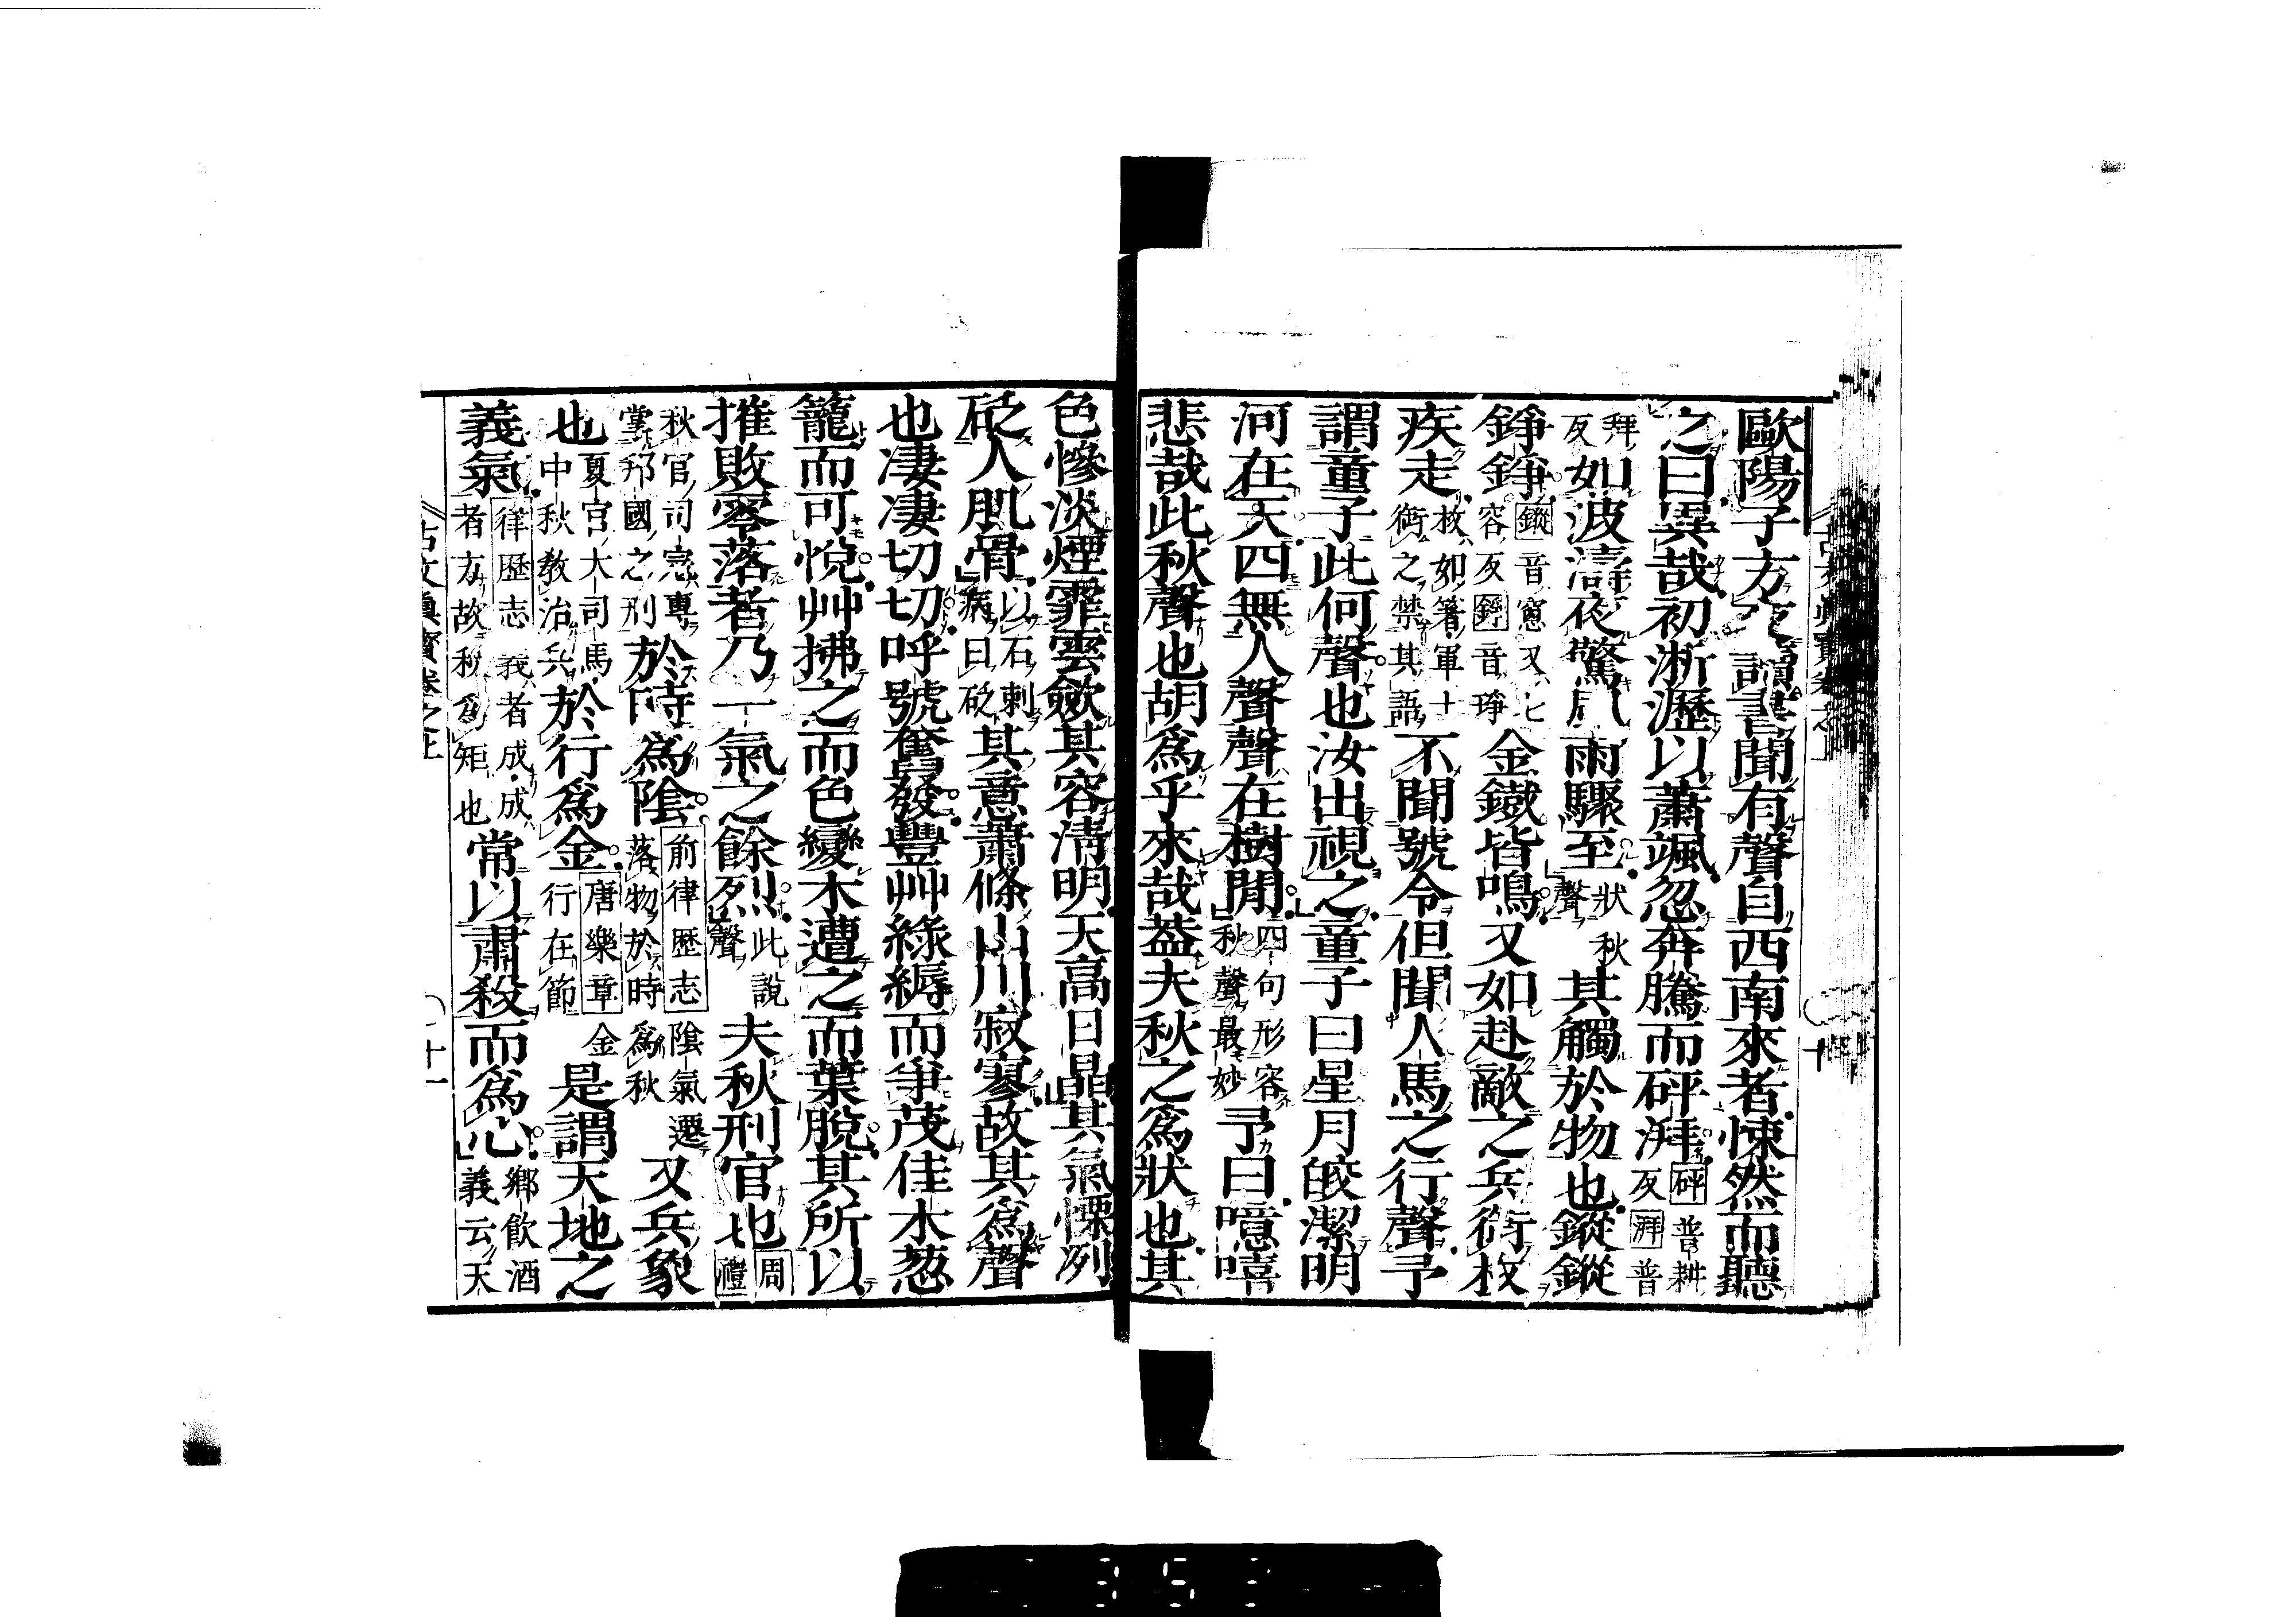 歐陽子方夜讀書聞有聲自西南來者悚然而聽
之曰異哉初淅瀝以蕭颯忽奔騰而砰湃砰普耕反湃普
拜反如波濤夜驚風雨驟至狀秋聲其觸於物也鏦鏦
錚錚鏦音窓又七容反錚音琤金鐵皆鳴又如赴敵之兵銜枚
疾走枚如箸軍士銜之禁其語不聞號令但聞人馬之行聲予
謂童子此何聲也汝出視之童子曰星月皎潔明
河在天四無人聲聲在樹間四句形容秋聲最妙予曰噫嘻
悲哉此秋聲也胡爲乎來哉葢夫秋之爲狀也其
色慘淡煙霏雲歛其容淸明天高日晶其氣慄冽
砭人肌骨以石刺病曰砭其意蕭條山川寂寥故其爲聲
也凄凄切切呼號奮發豐艸綠縟而爭茂佳木葱
籠而可悅艸拂之而色變木遭之而葉脫其所以
摧敗零落者乃一氣之餘烈此說聲夫秋刑官也周禮
秋官司寇專掌邦國之刑於時爲陰前律歷志陰氣遷落物於時爲秋又兵象
也夏官大司馬中秋敎治兵於行爲金唐樂章金行在節是謂天地之
義氣律歷志義者成成者方故秋爲矩也常以肅殺而爲心鄉飮酒義云天
古文眞寶卷之上
十一